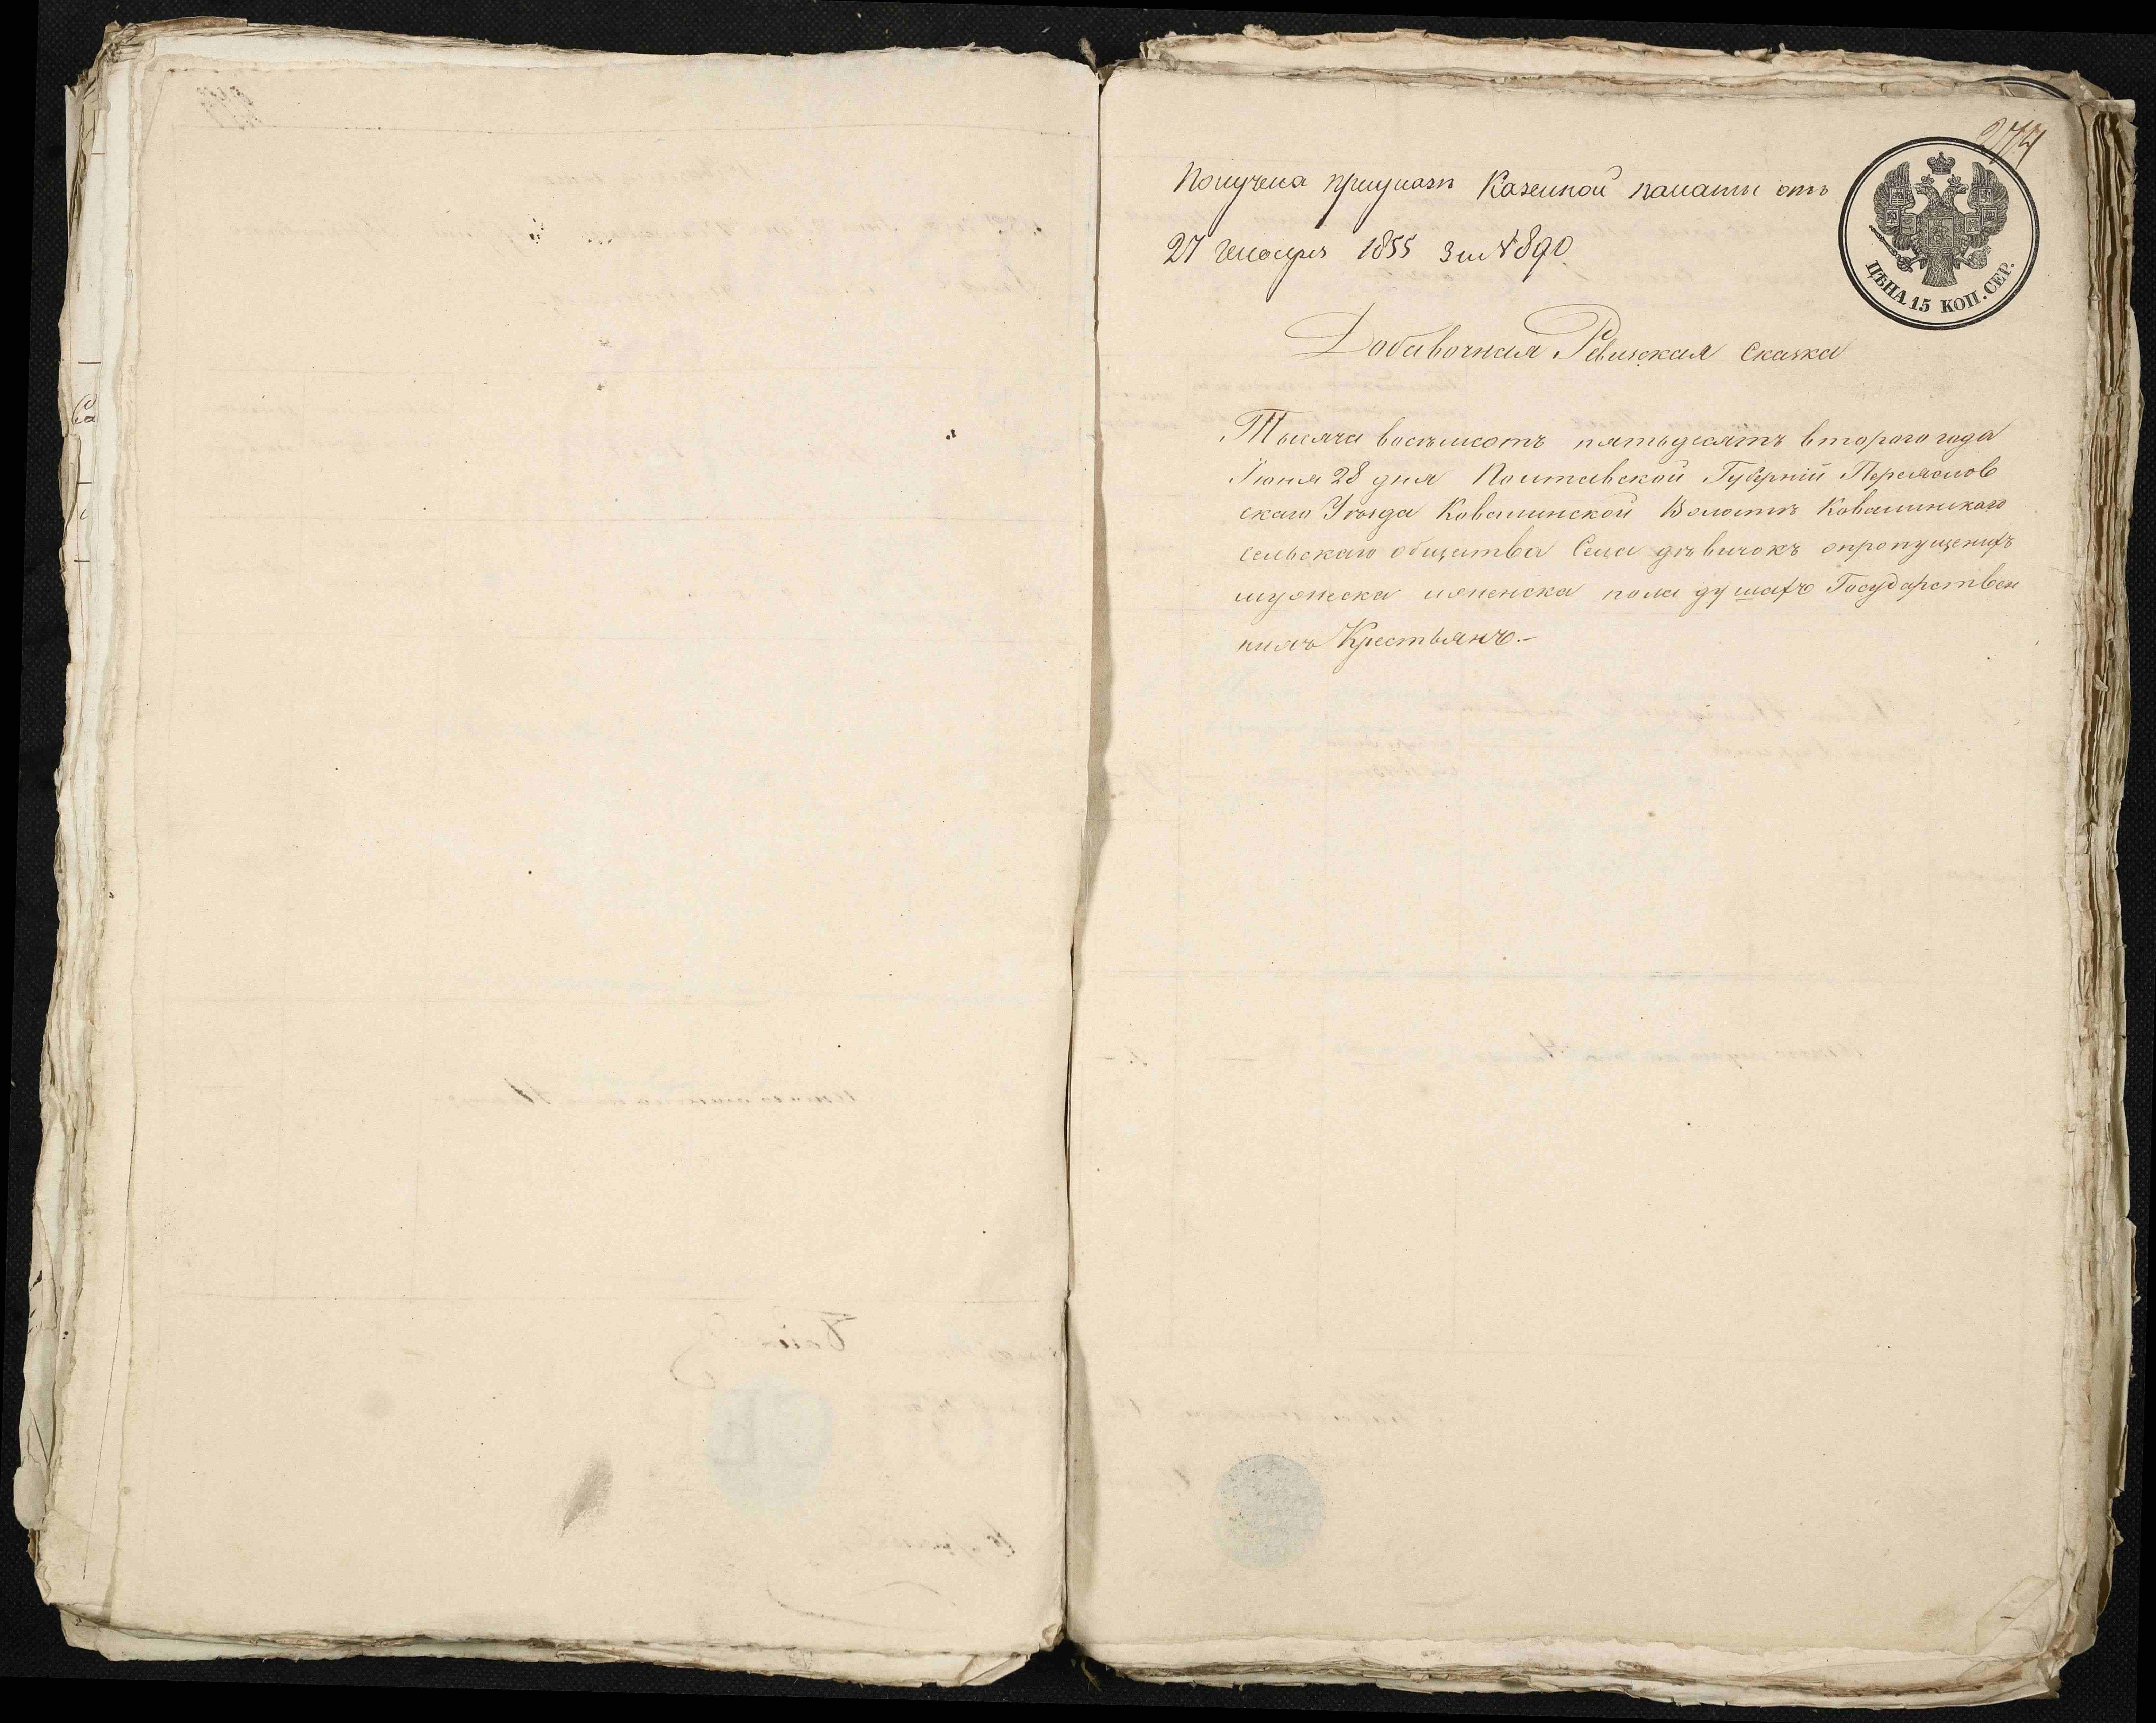 274
Получена приуказѣ Казенной палаты отъ
27 генваря 1855 За № 890
ЦѢНА 15 КОП. СЕР.
Добавочная Ревизская Сказка
Тысяча восемсотъ пятьдесятъ второго года
Іюня 28 дня Полтавской Губерніи Переяслов
скаго Уѣзда Ковалинской Волости Ковалинскаго
сельскаго общества Села дѣвичокъ опропущеныхъ
мужеска иженска пола душахъ Государствен
ныхъ Крестьянъ.-